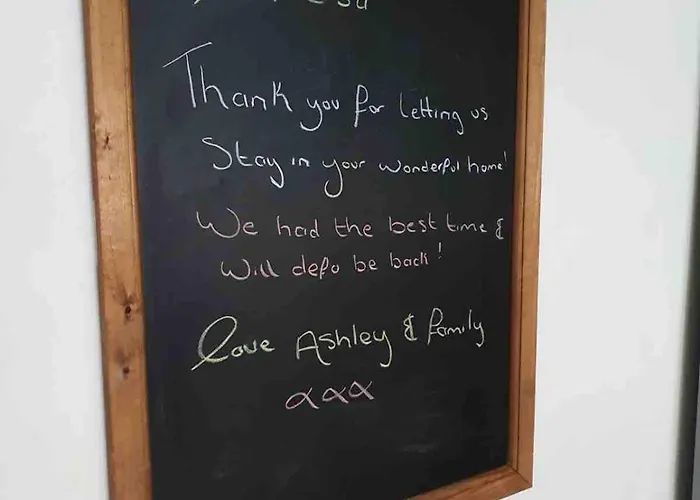 Thank you for letting us
Stay in your wonderful home!
We had the best time &
Will defo be back!
Love Ashley & family
xxx